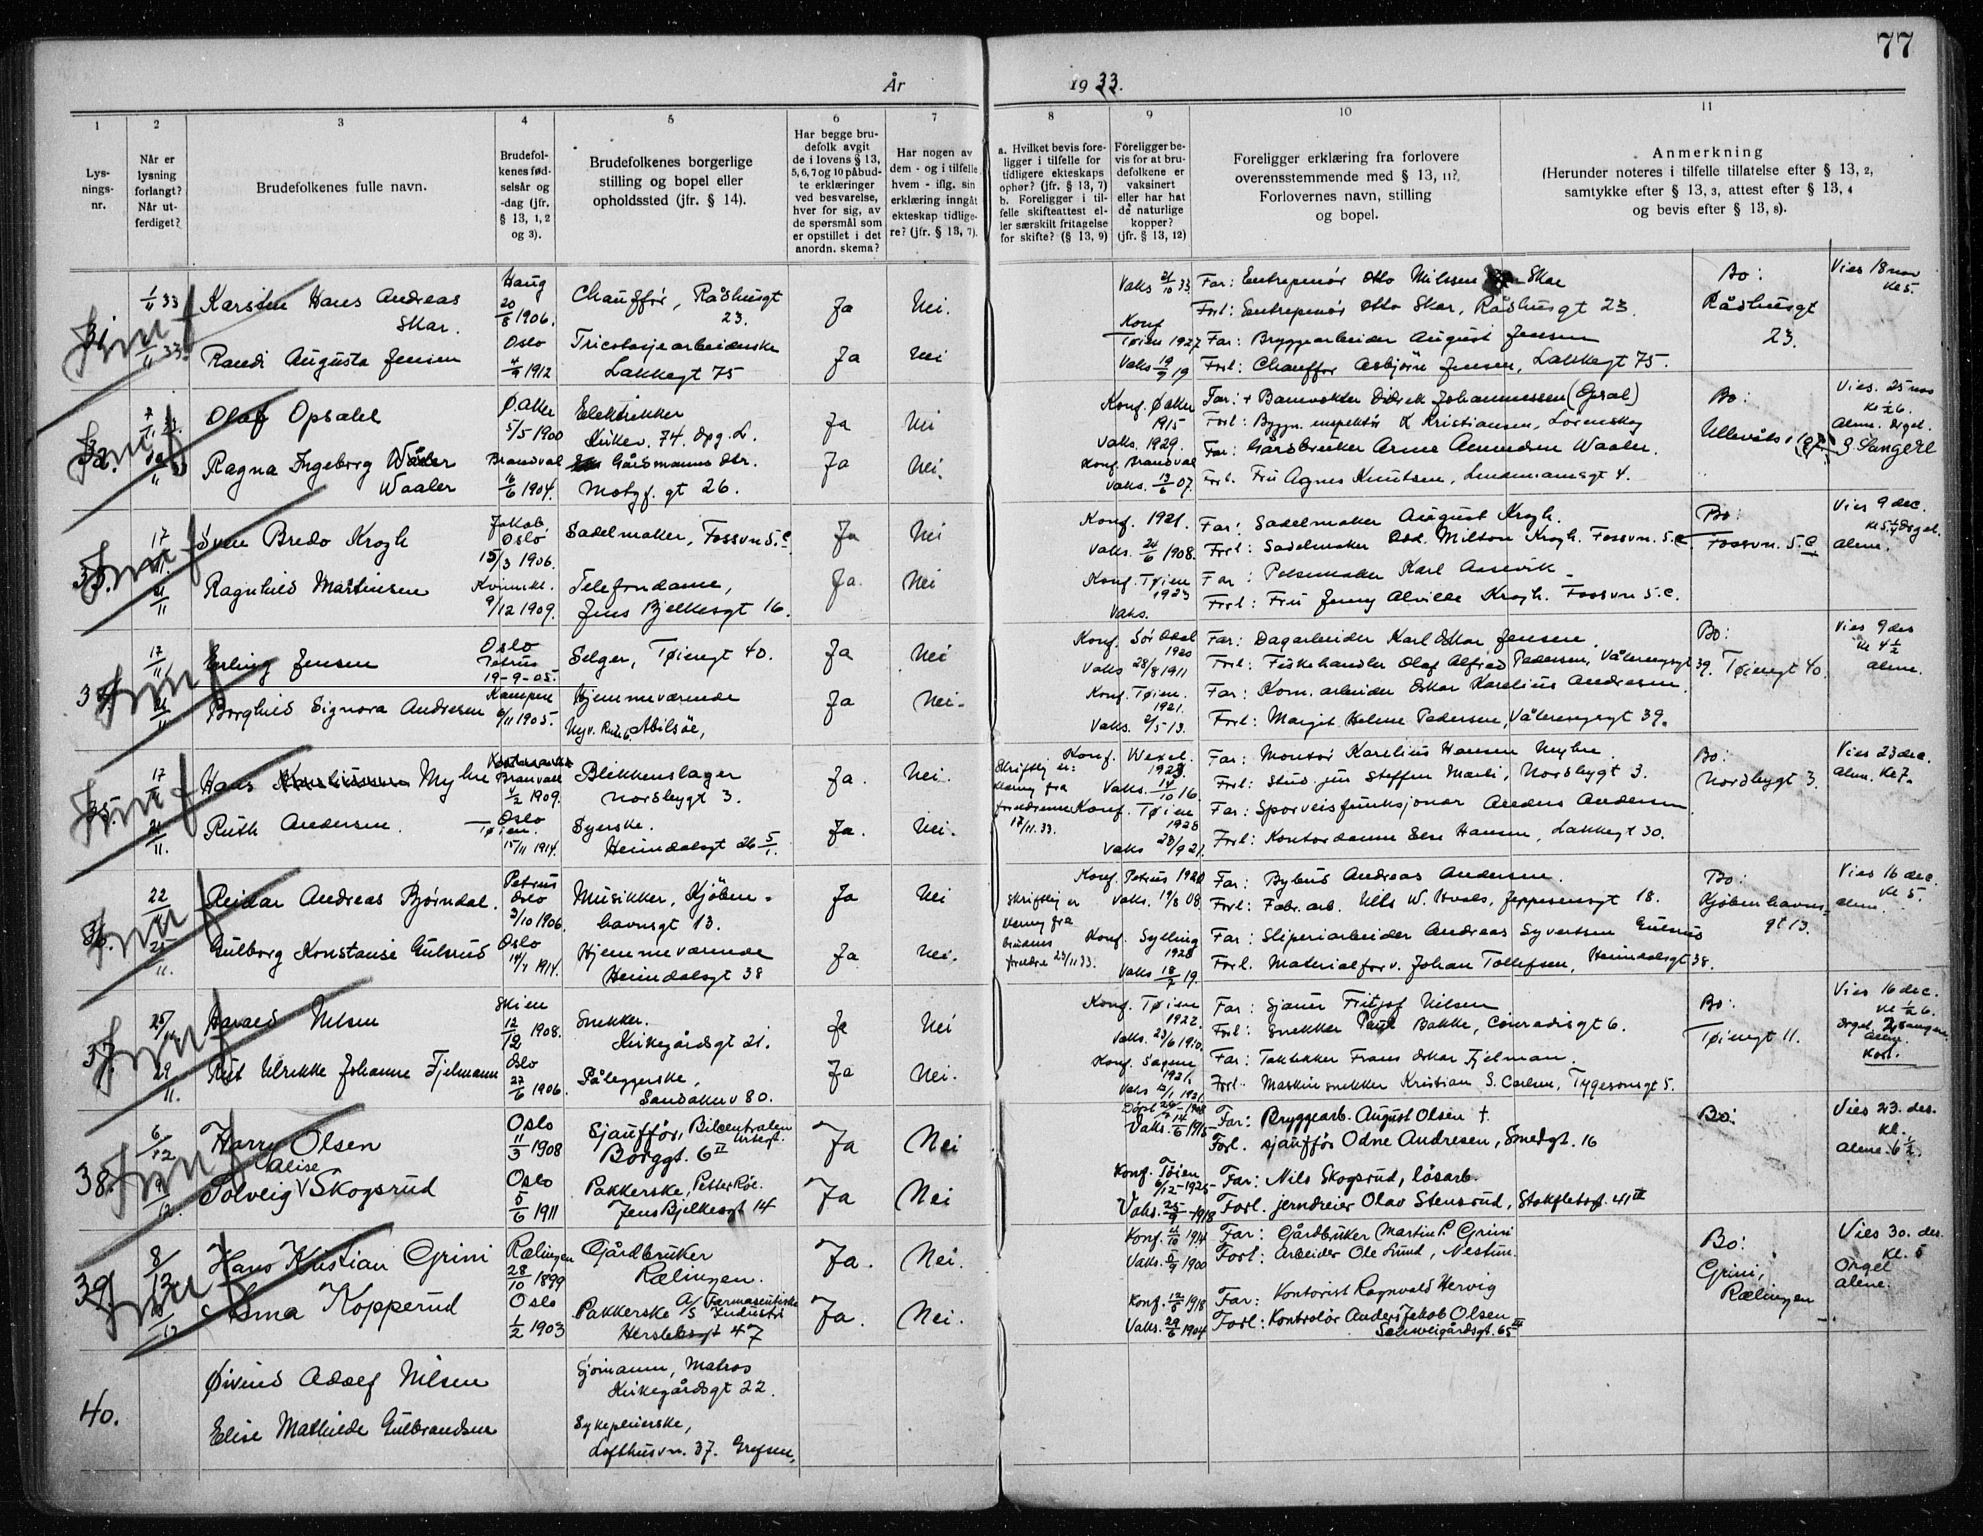 77
År 1933.
1
2
3
4
5
6
7
8
9
10
11
Lys-
nings-
nr.
Når er
lysning
forlangt?
Når ut-
ferdiget?
Brudefolkenes fulle navn.
Brudefol-
kenes fød-
selsår og
-dag (jfr.
§ 13, 1, 2
og 3).
Brudefolkenes borgerlige
stilling og bopel eller
opholdssted (jfr. § 14).
Har begge bru-
defolk avgit
de i lovens § 13,
5, 6, 7 og 10 påbud-
te erklæringer
ved besvarelse,
hver for sig, av
de spørsmål som
er opstillet i det
anordn. skema?
Har nogen av
dem - og i tilfelle
hvem - iflg. sin
erklæring inngått
ekteskap tidlige-
re? (jfr. § 13, 7).
a. Hvilket bevis fore-
ligger i tilfelle for
tidligere ekteskaps
ophør? (jfr. § 13, 7)
b. Foreligger i til-
felle skifteattest el-
ler særskilt fritagelse
for skifte? (§ 13, 9)
Foreligger be-
vis for at bru-
defolkene er
vaksinert
eller har hat
de naturlige
kopper?
(jfr. § 13, 12)
Foreligger erklæring fra forlovere
overensstemmende med § 13, 11?
Forlovernes navn, stilling
og bopel.
Anmerkning
(Herunder noteres i tilfelle tillatelse efter § 13, 2,
samtykke efter § 13, 3, attest efter § 13, 4
og bevis efter § 13, 8).
31
1/11 33
Karsten Hans Andreas
Skar.
Haug
20/8 1906.
Chauffør, Rådhusgt
23.
Ja
Nei.
Vaks 21/10 33.
Far: Entrepenør Otto Nilssen Skar
Forl: Entrepenør Otto Skar, Rådhusgt 23.
Bo:
Rådhusgt
23.
Vies 18 nov
kl 5.
Randi Augusta Jensen
Oslo
4/9 1912
Tricotasjearbeiderske
Lakkegt 75
Ja
Nei
Konf
Tøien 1927
Vaks 19/9 19
Far: Bryggearbeider August Jensen
Forl: Chauffør Asbjørn Jensen, Lakkegt 75.
32.
Olaf Opsahl
Ø. Aker
5/5 1900
Elektrikker
Kirkev. 74. opg. L.
Ja
Nei
Konf. Ø aker
1915
Vaks. 1929.
Far: + Banevokter Didrik Johannessen (Opsal)
Forl: Bygn. inspektør K Kristiansen, Lørenskog
Bo:
Vies. 25 nov
kl 1/2 6.
Alene. Orgel.
Ragna Ingeborg Waaler
Brandval
16/6 1904.
Gårdmanns dtr.
Motzf. gt 26.
Ja
Nei.
Konf. Brandval
Vaks. 13/6 07.
Far: Gårdbruker Arne Amundsen Waaler.
Forl. Fru Agnes Knutsen, Lindemansgt 4.
33.
17/11.
Sven Bredo Krogh
Jakob
Oslo
15/3 1906.
Sadelmaker, Fossvn 5.c
Ja
Nei
Konf. 1921.
Vaks. 24/6 1908.
Far: Sadelmaker August Krogh.
Forl: Sadelmaker Odd. Milton Krogh. Fossvn. 5.c.
Bo:
Fossvn. 5.c
Vies 9 dec.
Alene.
21/11
Ragnhild Martinsen
9/12 1909.
Telefondame,
Jens Bjelkesgt 16.
Ja.
Nei
Konf. Tøien
1923
Vaks.
Far: Pølsemaker Karl Aasevik
Forl: Fru Jenny Alvilde Krogh. Fossvn 5.c.
34
17/11
Erling Jensen
Oslo
Petrus
19-9-05.
Selger, Tøiengt 40.
Ja
Nei
Konf. Sør Odal
1920
Vaks 28/8 1911
Far: Dagarbeider Karl Oskar Jensen
Forl: Fiskehandler Olaf Alfred Pedersen, Vålerenggt 39.
Bo:
Tøiengt 40.
Vies 9 des
kl 4 1/2
alene.
21/11
Borghild Signora Andresen
Kampen
6/11 1905.
Hjemmeværende
Abilsøe,
Ja
Nei.
Konf. Tøien.
1921.
Vaks. 2/5 13.
Far: Kom. arbeider Oskar Karelius Andresen.
Forl: Margit Helene Pedersen, Vålerenggt 39.
35.
17/11
Hans Myhre
Branvall
4/2 1909.
Blikkenslager
Nordbygt 3.
Ja.
Nei.
Konf. Wexel.
1923.
Vaks. 14/10 16.
Far: Montør Karelius Hansen Myhre.
Forl: Stud. jur Steffen Marti, Nordbygt 3.
Bo:
Nordbygt 3.
Vies 23 dec.
Alm. kl 7.
21/11.
Ruth Andersen.
Oslo
Tøien.
15/11 1914.
Syerske.
Heimdalsgt 26 5/1.
Ja.
Nei.
Skriftlig er-
klæring fra
foreldrene
17/11.33.
Konf. Tøien
1928
Vaks 23/9 21.
Far: Sporveisfunksjonær Anders Andersen
Forl: Kontordame Else Hansen, Lakkegt 30.
36.
22/11
Reidar Andreas Bjørndal.
Petrus
Oslo
3/10 1906.
Musikker, Kjøben-
havnsgt 13.
Ja
Nei
Konf. Petrus 1920
Vaks. 19/8 08.
Far: Bybud Andreas Andersen.
Forl: Fabr. arb. Nils W. Hvals, Jeppesensgt 18.
Bo:
Kjøbenhavns-
gt 13.
Vies 16 dec.
kl 5.
Alene.
25/11.
Gulborg Konstanse Gulsrud
Oslo
14/1 1914.
Hjemmeværende
Heimdalsgt 38
Ja
Nei.
Skriftlig er
klæring fra
brudens
foreldre 23/11 33.
Konf. Sylling
1928
Vaks 18/2 19.
Far: Sliperiarbeider Andreas Syvertsen Gulsrud
Forl. Materialforv. Johan Tollefsen, Heimdalsgt 38.
37.
25/11
Harald Nilsen
Skien
12/12 1908.
Snekker.
Kirkegårdsgt 21.
Ja
Nei
Konf. Tøien
1922.
Vaks. 23/6 1910.
Far: Sjauer Fritjof Nilsen
Forl: Snekker Paul Bakke, Conradisgt 6.
Bo:
Tøiengt 11.
Vies 16 dec.
kl 1/2 6.
Orgel 2 sangere.
Alene.
29/11.
Rut Ulrikke Johanne Fjelmann
Oslo
27/6 1906.
Påleggerske,
Sandakerv 80.
Ja
Nei.
Konf. Sagene
1921.
Far: Taktekker Frans Oskar Fjelman.
Forl. Maskinsnekker Kristian S. Carlsen, Tygesonsgt 5.
38.
6/12
Harry Olsen
Oslo
11/3 1908
Sjauffør, Bilcentralen
Borggt. 6 II
Ja
Nei
Vaks. 14/6 1915
Far: Bryggearb. August Olsen †
Forl. sjauffør Odne Andresen, Smedgt. 16
Bo:
Vies 23. des.
Kl.
Alene. 6 1/2.
9/12.
Solveig Alise Skogsrud
Oslo
5/6 1911
Pakkerske, Petter Røe.
Jens Bjelkesgt 14
Ja
Nei
Konf. Tøien
6/12-1925-
Vaks. 25/9-1918
Far: Nils Skogsrud, løsarb.
Forl. jerndreier Olav Stensrud, Stokfletsgt. 41 II
39
8/12
Hans Kristian Grini
Rælingen
28/10 1899
Gårdbruker
Rælingen.
Ja.
Nei.
Konf. 4/10 1914
Vaks. 5/9 1900
Far: Gårdbruker Martin P. Grini
Forl: Arbeider Ole Lund, Nestun.
Bo:
Grini,
Rælingen
Vies 30. des.
Kl. 5
Orgel
alene.
Asma Kopperud
Oslo
1/2 1903
Pakkerske A/S Farmaseutiske
Industri
Herslebsgt 47
Ja.
Nei.
Konf. 12/5 1918
Vaks. 29/6 1904
Far: Kontorist Ragnvald Hervig
Forl: Kontrolør Anders Jakob Olsen
Schweigårdsgt. 65 III
40.
Øivind Adolf Nilsen
Sjømann, Matros
Kirkegårdsgt 22.
Elise Mathilde Gulbrandsen
Sykepleierske,
Lofthusvn. 37. Grefsen,